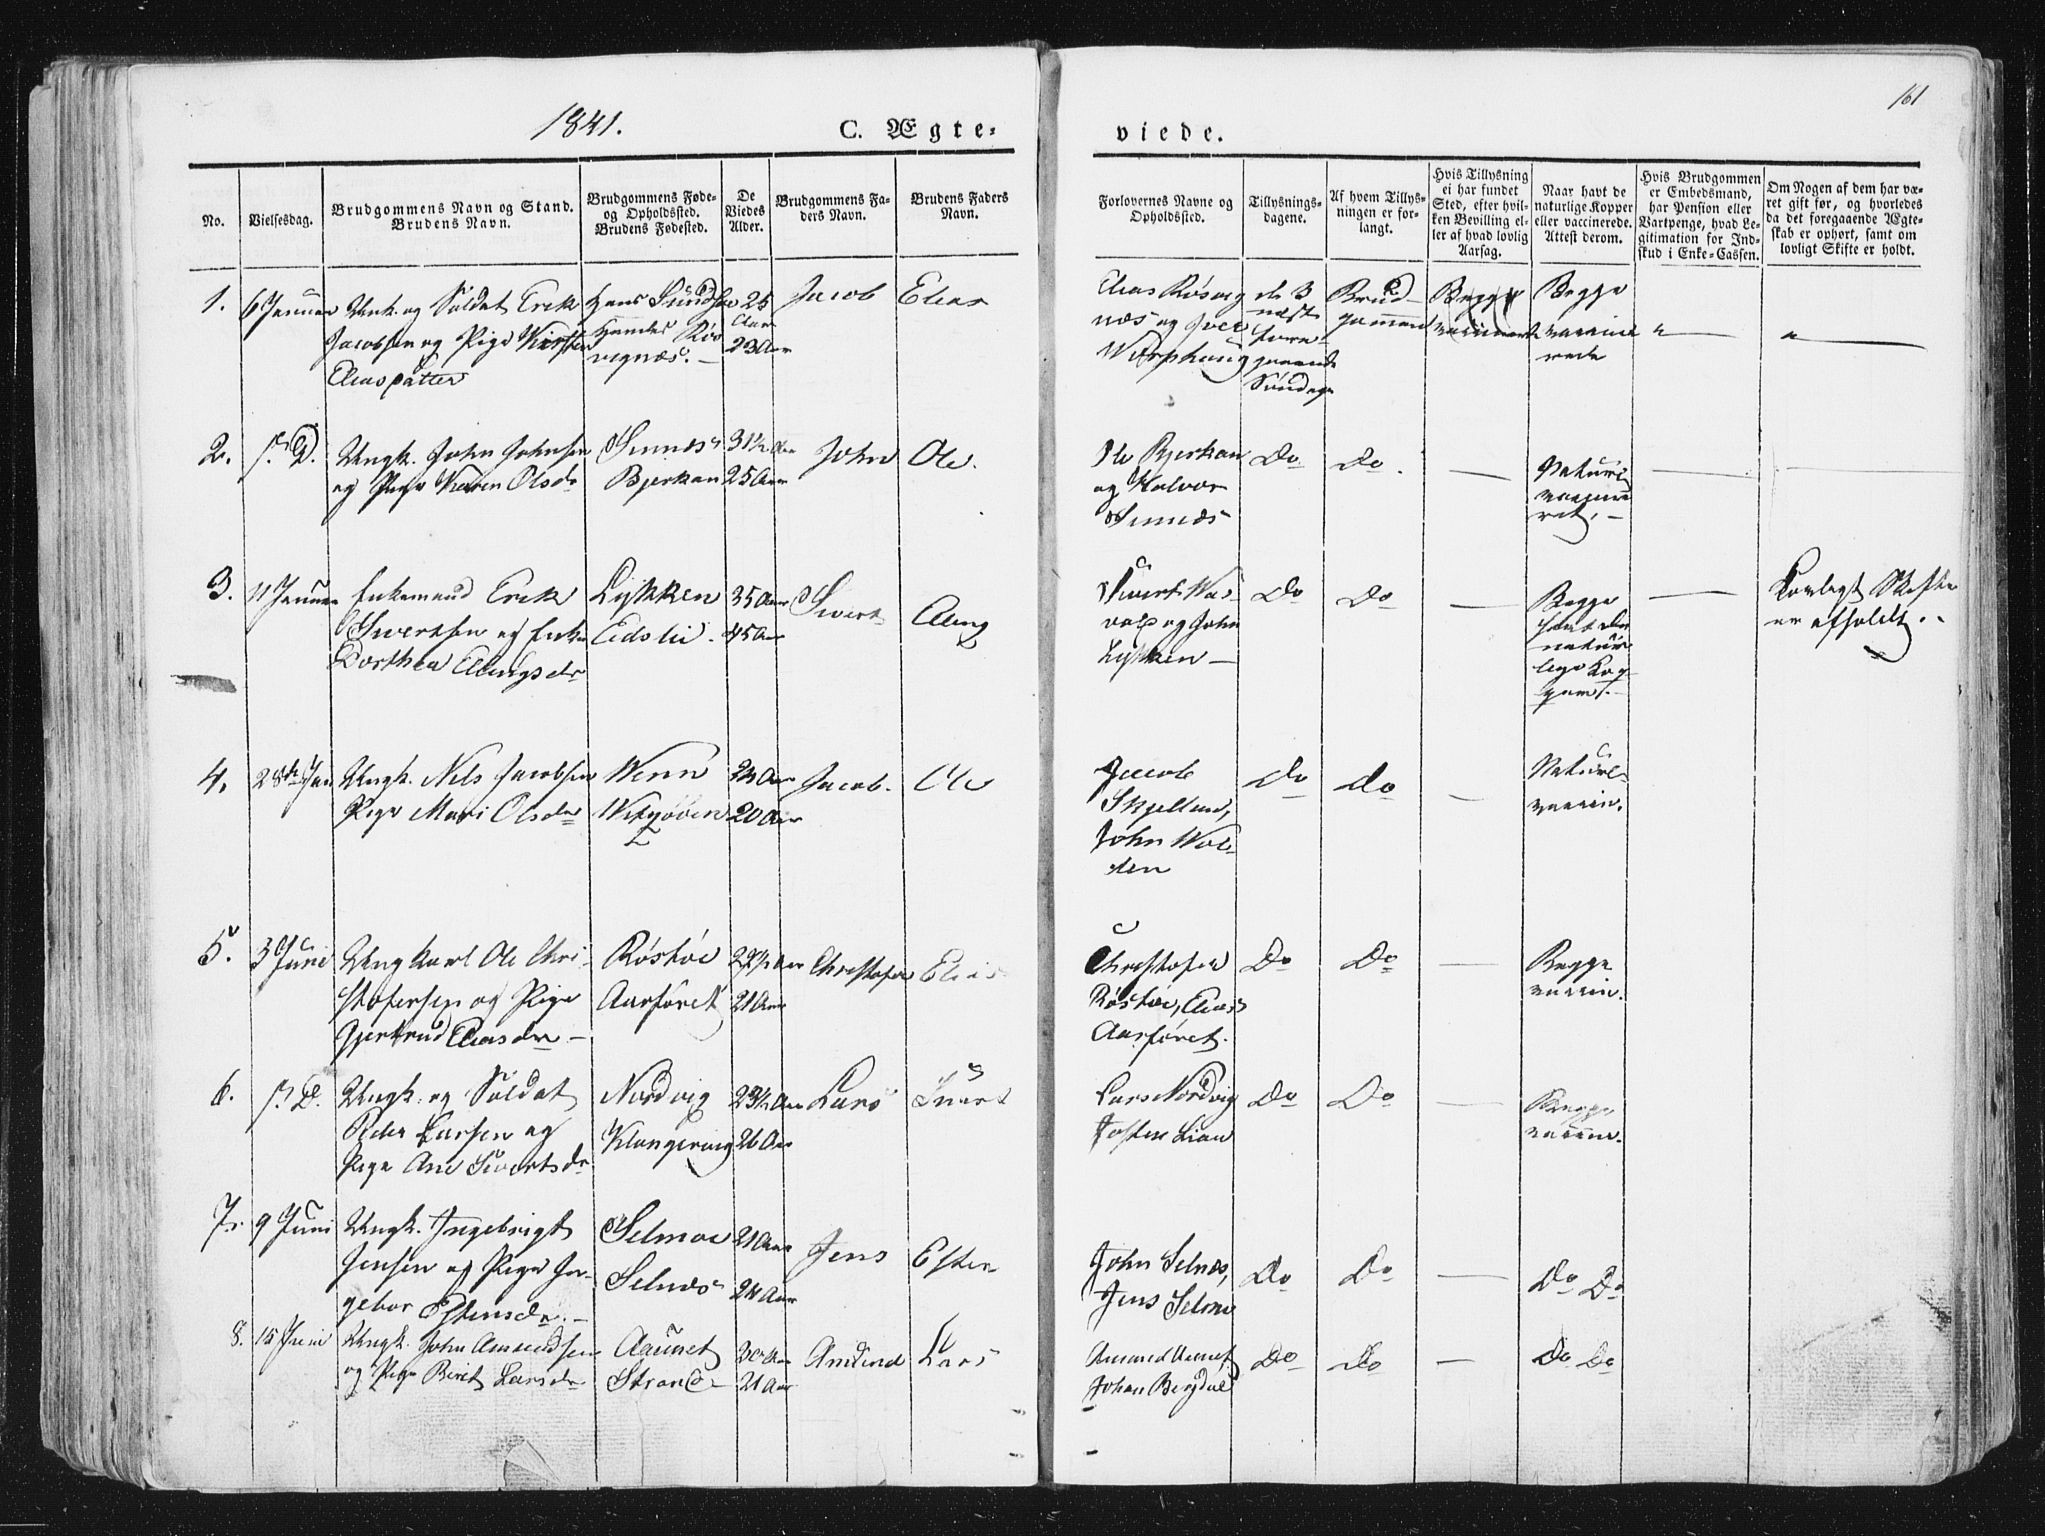 1841.
C. Ægte-
viede.
161
No.
Vielsesdag.
Brudgommens Navn og Stand.
Brudens Navn.
Brudgommens Føde-
og Opholdssted.
Brudens Fødested.
De
Viedes
Alder.
Brudgommens Fa-
ders Navn.
Brudens Faders
Navn.
Forlovernes Navne og
Opholdssted.
Tillysnings-
dagene.
Af hvem Tillys-
ningen er for-
langt.
Hvis Tillysning
ei har fundet
Sted, efter hvil-
ken Bevilling el-
ler af hvad lovlig
Aarsag.
Naar havt de
naturlige Kopper
eller vaccinerede.
Attest derom.
Hvis Brudgommen
er Embedsmand,
har Pension eller
Vartpenge, hvad Le-
gitimation for Ind-
skud i Enke-Cassen.
Om Nogen af dem har væ-
ret gift før, og hvorledes
da det foregaaende Ægte-
skab er ophørt, samt om
lovligt Skifte er holdt.
1.
6 Januar
Unk. og Soldat Erik
Jacobsen og Pige Kirsten
Eliasdatter
25
Aar
23 Aar
Jacob
Elias
Elias Røsvig
næs og
de 3
næst
fore-
gaaende
Søndage
Brud-
gommen
Begge
vaccine
rede
2.
Ungk. John Johnsen
og Pige Karen Olsdr
Bjerkan
31½ Aar
25 Aar
John
Ole.
Ole Bjerkan
og Halvor
Do
Do.
Naturl
vaccine
ret. –
3.
11 Januar
Enkemand Erik
Sivertsen og Enke
Dorthea Ellingsdr
Lykken
Eidslie.
35 Aar
45 Aar
Sivert
Elling
Sivert
og John
Lykken –
Do
Do
Begge
havt de
natur
lige Kop
per. –
Lovligt Skifte
er afholdt.
4.
28de Jan
Ungk. Nils Jacobsen
Pige Mari Olsdr
Wenn
24 Aar
20 Aar
Jacob.
Ole
Jacob
Skjelland,
John Wol-
den
Do
Do
Naturl-
vaccin.
5.
3 Juni
Ungkarl Ole Chri-
stofersen og Pige
Gjertrud Eliasdr –
Røstøe
Aarsøret
22½ Aar
21 Aar
Christofer
Elias
Christofer
Røstøe, Elias
Aarsøret.
Do
Do
Begge
vaccin.
6.
s. D.
Ungk. og Soldat
Peder Larsen og
Pige Ane Sivertsdr
Nordvig
23½ Aar
26 Aar
Lars
Sivert
Lars Nordvig
Josten Lian
Do
Do
Begge
vaccin.
7.
9 Juni
Ungk. Ingebrigt
Jensen og Pige In-
gebor Estensdr. –
Selmoe
Selnæs
21 Aar
24 Aar
Jens
Esten
John Selnæs,
Jens Selmo
Do
Do
Do Do
8.
15 Juni
Ungk. John Amundsen
og Pige Berit Larsdr
Aaunet
Strand
30 Aar
21 Aar
Amund
Lars
Amund Aunet
Johan Bergdal
Do
Do
Do Do